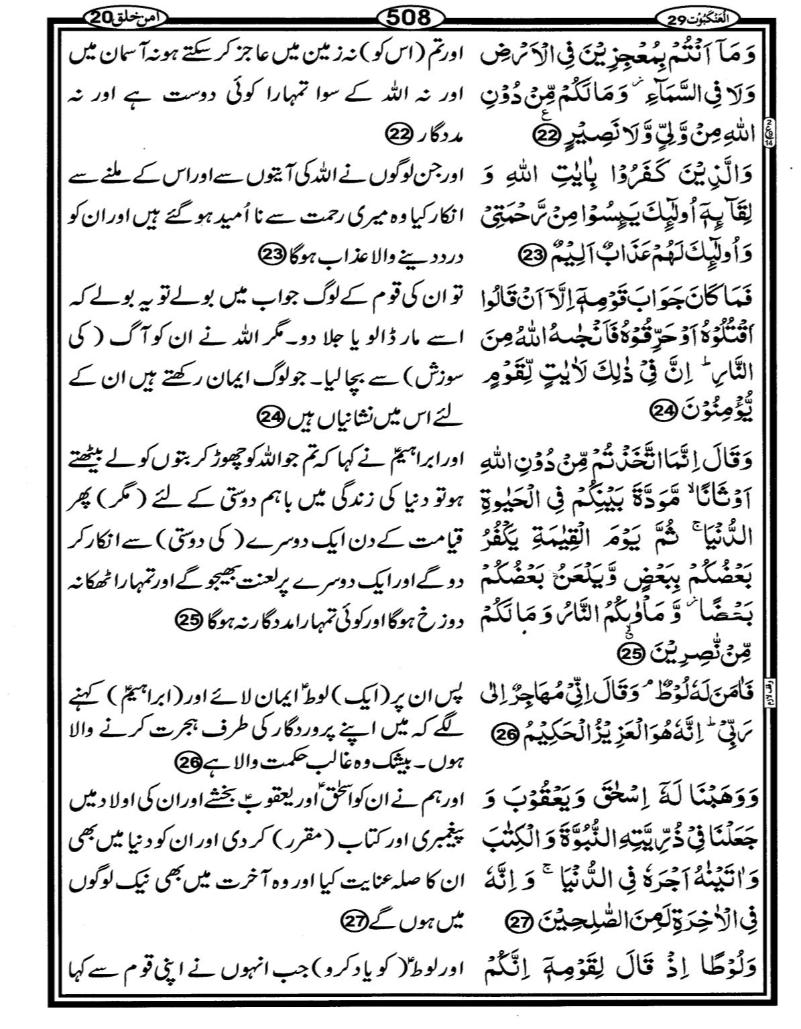 العنكبوت 29
508
امن خلق 20
وَمَآ اَنْتُمْ بِمُعْجِزِيْنَ فِى الْاَرْضِ
وَلَا فِى السَّمَآءِ ۫ وَمَا لَكُمْ مِّنْ دُوْنِ
اللّٰهِ مِنْ وَّلِيٍّ وَّلَا نَصِيْرٍ ع 22
اور تم (اس کو) نہ زمین میں عاجز کر سکتے ہو نہ آسمان میں
اور نہ اللہ کے سوا تمہارا کوئی دوست ہے اور نہ
مددگار 22
وَالَّذِيْنَ كَفَرُوْا بِاٰيٰتِ اللّٰهِ وَ
لِقَآئِهٖٓ اُولٰٓئِكَ يَئِسُوْا مِنْ رَّحْمَتِيْ
وَاُولٰٓئِكَ لَهُمْ عَذَابٌ اَلِيْمٌ 23
اور جن لوگوں نے اللہ کی آیتوں سے اور اس کے ملنے سے
انکار کیا وہ میری رحمت سے نا اُمید ہو گئے ہیں اور ان کو
درد دینے والا عذاب ہوگا 23
فَمَا كَانَ جَوَابَ قَوْمِهٖٓ اِلَّآ اَنْ قَالُوا
اقْتُلُوْهُ اَوْ حَرِّقُوْهُ فَاَنْجٰىهُ اللّٰهُ مِنَ
النَّارِ ؕ اِنَّ فِيْ ذٰلِكَ لَاٰيٰتٍ لِّقَوْمٍ
يُّؤْمِنُوْنَ 24
تو ان کی قوم کے لوگ جواب میں بولے تو یہ بولے کہ
اسے مار ڈالو یا جلا دو۔ مگر اللہ نے ان کو آگ (کی
سوزش) سے بچا لیا۔ جو لوگ ایمان رکھتے ہیں ان کے
لئے اس میں نشانیاں ہیں 24
وَقَالَ اِنَّمَا اتَّخَذْتُمْ مِّنْ دُوْنِ اللّٰهِ
اَوْثَانًا ۙ مَّوَدَّةَ بَيْنِكُمْ فِى الْحَيٰوةِ
الدُّنْيَا ۚ ثُمَّ يَوْمَ الْقِيٰمَةِ يَكْفُرُ
بَعْضُكُمْ بِبَعْضٍ وَّيَلْعَنُ بَعْضُكُمْ
بَعْضًا ۫ وَّمَاْوٰىكُمُ النَّارُ وَمَا لَكُمْ
مِّنْ نّٰصِرِيْنَ 25
اور ابراہیمؑ نے کہا کہ تم جو اللہ کو چھوڑ کر بتوں کو لے بیٹھے
ہو تو دنیا کی زندگی میں باہم دوستی کے لئے (مگر) پھر
قیامت کے دن ایک دوسرے (کی دوستی) سے انکار کر
دو گے اور ایک دوسرے پر لعنت بھیجو گے اور تمہارا ٹھکانہ
دوزخ ہوگا اور کوئی تمہارا مددگار نہ ہوگا 25
فَاٰمَنَ لَهٗ لُوْطٌ ۘ وَقَالَ اِنِّيْ مُهَاجِرٌ اِلٰى
رَبِّيْ ؕ اِنَّهٗ هُوَ الْعَزِيْزُ الْحَكِيْمُ 26
پس ان پر (ایک) لوطؑ ایمان لائے اور (ابراہیمؑ) کہنے
لگے کہ میں اپنے پروردگار کی طرف ہجرت کرنے والا
ہوں۔ بیشک وہ غالب حکمت والا ہے 26
وَوَهَبْنَا لَهٗٓ اِسْحٰقَ وَيَعْقُوْبَ وَ
جَعَلْنَا فِيْ ذُرِّيَّتِهِ النُّبُوَّةَ وَالْكِتٰبَ
وَاٰتَيْنٰهُ اَجْرَهٗ فِى الدُّنْيَا ۚ وَاِنَّهٗ
فِى الْاٰخِرَةِ لَمِنَ الصّٰلِحِيْنَ 27
اور ہم نے ان کو اسحٰقؑ اور یعقوبؑ بخشے اور ان کی اولاد میں
پیغمبری اور کتاب (مقرر) کر دی اور ان کو دنیا میں بھی
ان کا صلہ عنایت کیا اور وہ آخرت میں بھی نیک لوگوں
میں ہوں گے 27
وَلُوْطًا اِذْ قَالَ لِقَوْمِهٖٓ اِنَّكُمْ
اور لوطؑ (کو یاد کرو) جب انہوں نے اپنی قوم سے کہا